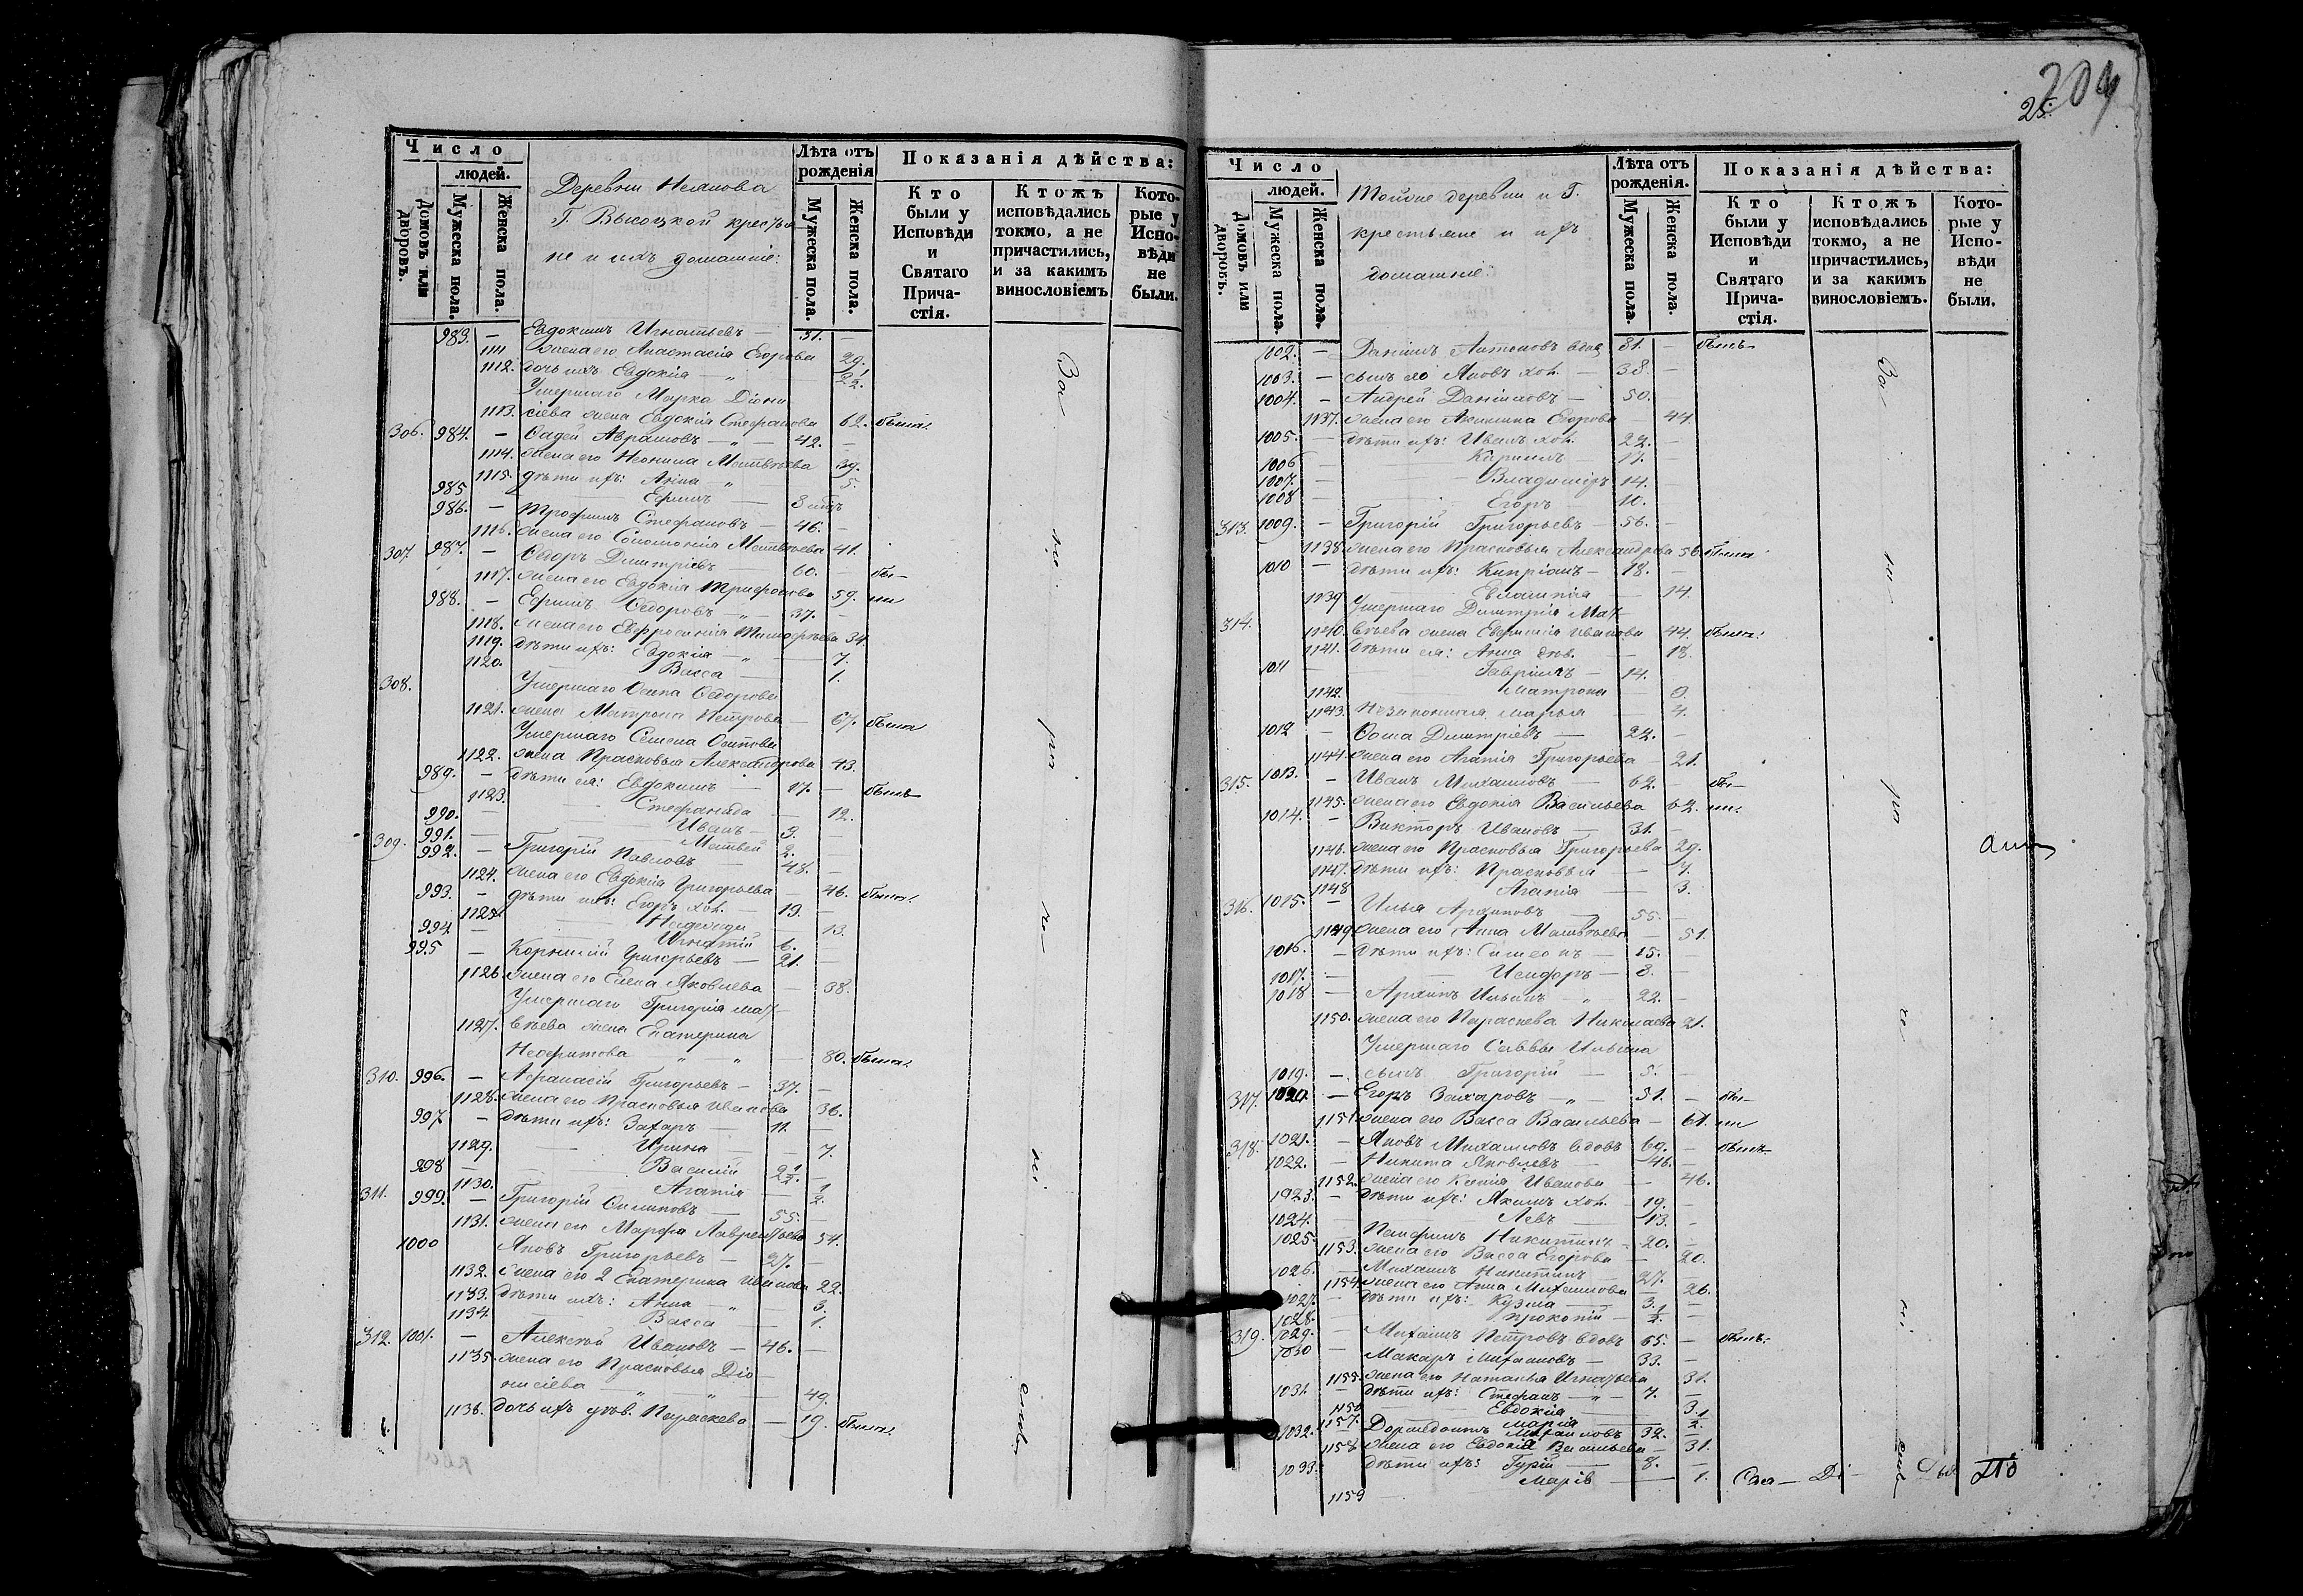 Число
людей.
Домовъ или дворовъ.
Мужеска пола.
Женска пола.
Деревни
Г. Высоцкой крестья
не и ихъ домашніе:
Лѣта отъ рожденія
Мужеска пола.
Женска пола.
Показанія дѣйства:
Кто были у Исповѣди и Святаго Причастія.
Ктожъ исповѣдались токмо, а не причастились, и за какимъ винословіемъ
Которые у Исповѣди не были.
983. — Евдокимъ Игнатьевъ — 31. —
1111 жена его Анастасія Егорова 29.
1112. дочь ихъ Евдокія — „ —
Умершаго Марка Діони
1113. сіева жена Евдокія Стефанова 62. была.
306. 984. — Фадей Аврамовъ — „ — 42. —
1114. жена его Неонила Матвѣева 39.
1115. дѣти ихъ: Анна „ 5.
985 Ефимъ — 3
986. — Трофимъ Стефановъ — 46. —
1116. жена его Соломонія Матвѣева 41.
307. 987. — Ѳедоръ Димитріевъ — 60. — бы—
1117. жена его Евдокія Трифонова 59. ли
988. — Ефимъ Ѳедоровъ — „ — 37. —
1118. жена его Евфросинія Тимофѣева 34.
1119. дѣти ихъ: Евдокія — „ — 7.
1120. — Васса — 1.
308. Умершаго Осипа Ѳедорова
1121. жена Матрона Петрова — 67. была
Умершаго Семена Осипова
1122. жена Прасковья Александрова 43.
989. — дѣти ея: Евдокимъ — 17. — былъ
1123. Стефанида — 12.
990. — Иванъ — 3. —
991. — Матвей 2. —
309. 992. — Григорій Павловъ — 48. —
1124. жена его Евдокія Григорьева — 46. была.
993. — дѣти ихъ: Егоръ хол. — 19. —
1125. Надежда — 13.
994. — Игнатій 6. —
995 — Корнилій Григорьевъ — 21. —
1126. жена его Елена Яковлева — 38.
Умершаго Григорія Мат
1127. вѣева жена Екатерина
Неофитова — „ — „ — 80. была.
310. 996. — Афанасій Григорьевъ — 37. —
1128. жена его Прасковья Иванова 36.
997 — дѣти ихъ: Захаръ — 11. —
1129. — Ирина — 7.
998 — Василій 2½. —
1130. Агапія —
311. 999. — Григорій — 55. —
1131. жена его Марфа Лаврентьева 54.
1000 Яковъ Григорьевъ — 27. —
1132. жена его 2 Екатерина Иванова 22.
1133. дѣти ихъ: Анна — „ — 3.
1134 — Васса — 1.
312. 1001. — Алексѣй Ивановъ — 46. —
1135. жена его Прасковья Діо
нисіева — „ — „ — 49.
1136. дочь ихъ дѣв. Параскева — 19. была.
Во
ро
хо
204
25.
Число
людей.
Домовъ или дворовъ.
Мужеска пола.
Женска пола.
Тойже деревни и Г.
крестьяне и ихъ
домашніе:
Лѣта отъ рожденія.
Мужеска пола.
Женска пола.
Показанія дѣйства:
Кто были у Исповѣди и Святаго Причастія.
Ктожъ исповѣдались токмо, а не причастились, и за какимъ винословіемъ.
Которые у Исповѣди не были.
1002. — Даніилъ Антоновъ вдов 81. — былъ
1003. — сынъ его Яковъ хол. — 38. —
1004. — Андрей Даніиловъ — 50. —
1137. жена его Акилина Егорова 44.
1005. — дѣти ихъ: Иванъ хол. 22. —
1006 — Кириллъ 17. —
1007. — Владиміръ 14. —
1008 — Егоръ 10. —
313. 1009. — Григорій Григорьевъ — 56. —
1138. жена его Прасковья Александрова 56 была.
1010 — дѣти ихъ: Кипріанъ — 18. —
1139 Евлампія — 14.
314. Умершаго Димитрія Мат
1140. вѣева жена Евфимія Иванова 44. была.
1141. дѣти ея: Анна дѣв. — 18.
1011 — Гавріилъ — 14. —
1142. Матрона — 9.
1143. Незаконная Марья — 4.
1012 — Ѳома Димитріевъ — 22. —
1144. жена его Агапія Григорьева — 21.
315. 1013. — Иванъ Михаиловъ — 62. — бы—
1145. жена его Евдокія Васильева 62. ли.
1014. — Викторъ Ивановъ — 31. —
1146. жена его Прасковья Григорьева 29.
1147. дѣти ихъ: Прасковья — 7.
1148 Агапія — 3.
316. 1015. — Илья Архиповъ — 55. —
1149 жена его Анна Матвѣева — 51.
1016. — дѣти ихъ: Симеонъ — 15. —
1017. — Исидоръ — 8. —
1018 — Архипъ Ильинъ — „ — 22. —
1150. жена его Параскева Николаева 21.
Умершаго Саввы Ильина
1019. — сынъ Григорій — 5. —
317. 1020. — Егоръ Захаровъ — „ — 51. — бы—
1151. жена его Васса Васильева — 61. ли
318. 1021. — Яковъ Михаиловъ вдовъ 69. — былъ
1022. — Никита Яковлевъ — 46. —
1152. жена его Ксенія Иванова — 46.
1923. — дѣти ихъ: Якимъ хол. — 19. —
1024. — Левъ — 13. —
1025. Памфилъ Никитинъ — 20. —
1153. жена его Васса Егорова — 20.
1026. — Михаилъ Никитинъ — 27. —
1154. жена его Анна Михаилова — 26.
1027. — дѣти ихъ: Кузма — 3. —
1028. — Прокопій — ½. —
319. 1029. — Михаилъ Петровъ вдовъ 65. — былъ.
1030 — Макаръ Михаиловъ — 33. —
1155. жена его Наталья Игнатьева 31.
1031. — дѣти ихъ: Стефанъ — „ — 7. —
1156 Евдокія 3.
1157. Марія — ½.
1032. — Дормедонтъ Михаиловъ 32. —
1158 жена его Евдокія Васильева — 31.
1093. дѣти ихъ: Гурій — 8. —
1159 Марія — 1.
Во
ро
хо